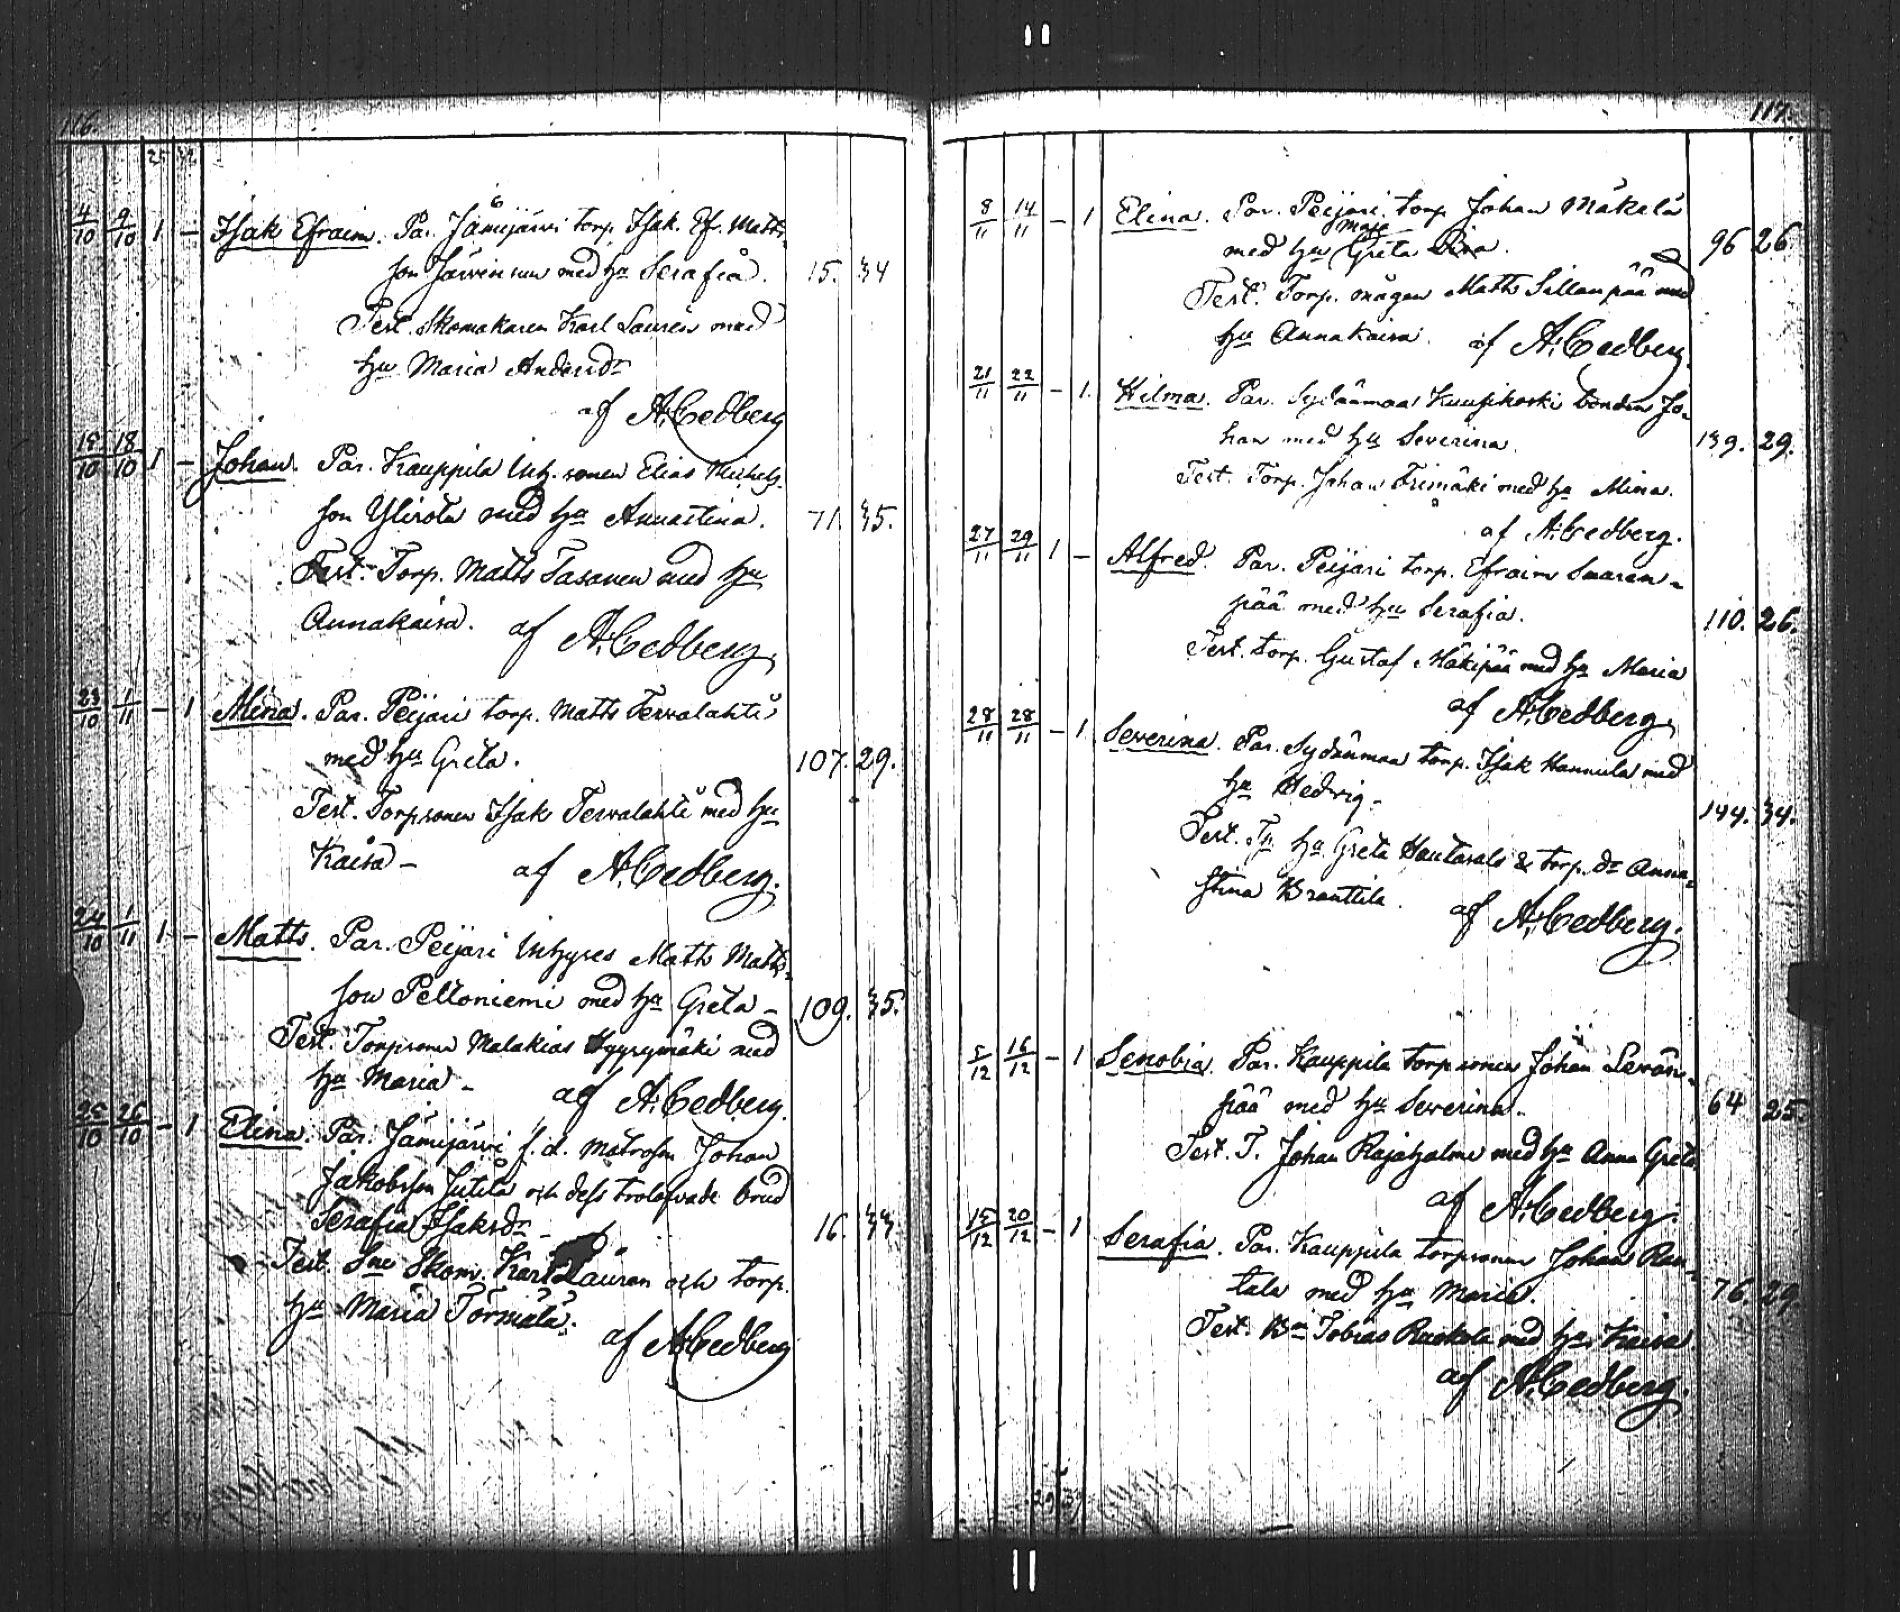 116.
25 32
4/10 9/10 1 – Isak Efraim. Par. Jämijärvi torp. Isak. Ef. Matts-
son Järvinen med hu Serafia. 15. 34
Test. Skomakaren Karl Laurén med
hu Maria Andersdr
af A. Cedberg
15/10 18/10 1 – Johan. Par. Kauppila Inh. sonen Elias Michels-
son Ylirota med hu Annastina. 71. 35.
Test. Torp. Matts Tasanen med hu
Annakaisa. af A. Cedberg.
23/10 1/11 – 1 Mina. Par. Peijari torp. Matts Tervalahti
med hu Greta. 107. 29.
Test. Torpsonen Isak Tervalahti med hu
Kaisa – af A. Cedberg.
24/10 1/11 1 – Matts. Par. Peijari Inhyses Matts Matts-
son Peltoniemi med hu Greta – 109. 35.
Test. Torpsonen Malakias med
hu Maria – af A. Cedberg.
25/10 26/10 – 1 Elina. Par. Jämijärvi f. d. Matrosen Johan
Jakobsson Jutila och dess trolofvade brud
Serafia Isaksdr – 16. 34
Test. Skom. Karl Lauren och torp.
hu Maria Törmälä. af A. Cedberg
117.
8/11 14/11 – 1 Elina. Par. Peijari torp Johan Mäkelä
Maja
med hu Greta Lisa. 96 26.
Test. Torp. mågen Matts Sillanpää med
hu Annakaisa. af A. Cedberg
21/11 22/11 – 1. Hilma. Par. Sydänmaa Kuusikoski bonden Jo-
han med hu Severina. 139. 29.
Test. Torp. Johan med hu Mina.
af A. Cedberg.
27/11 29/11 1 – Alfred. Par. Peijari torp. Efraim Saaren-
pää med hu Serafia. 110. 26.
Test. torp. Gustaf Mäkipää med hu Maria
af A. Cedberg.
28/11 28/11 – 1 Severina. Par. Sydänmaa torp. Isak Hannula med
hu Hedvig – 144. 34.
Test. hu Greta Hautasalo & torp. dr Anna-
stina Kranttila. af A. Cedberg.
5/12 16/12 – 1 Senobia. Par. Kauppila torpsonen Johan Levän-
pää med hu Severina. 64 25.
Test. T. Johan Rajahalme med hu Anna Greta
af A. Cedberg.
15/12 20/12 – 1 Serafia. Par. Kauppila torpsonen Johan Ran-
tala med hu Maria. 76. 29.
Test. Tobias Ruokola med hu Kaisa.
af A. Cedberg.
29 39